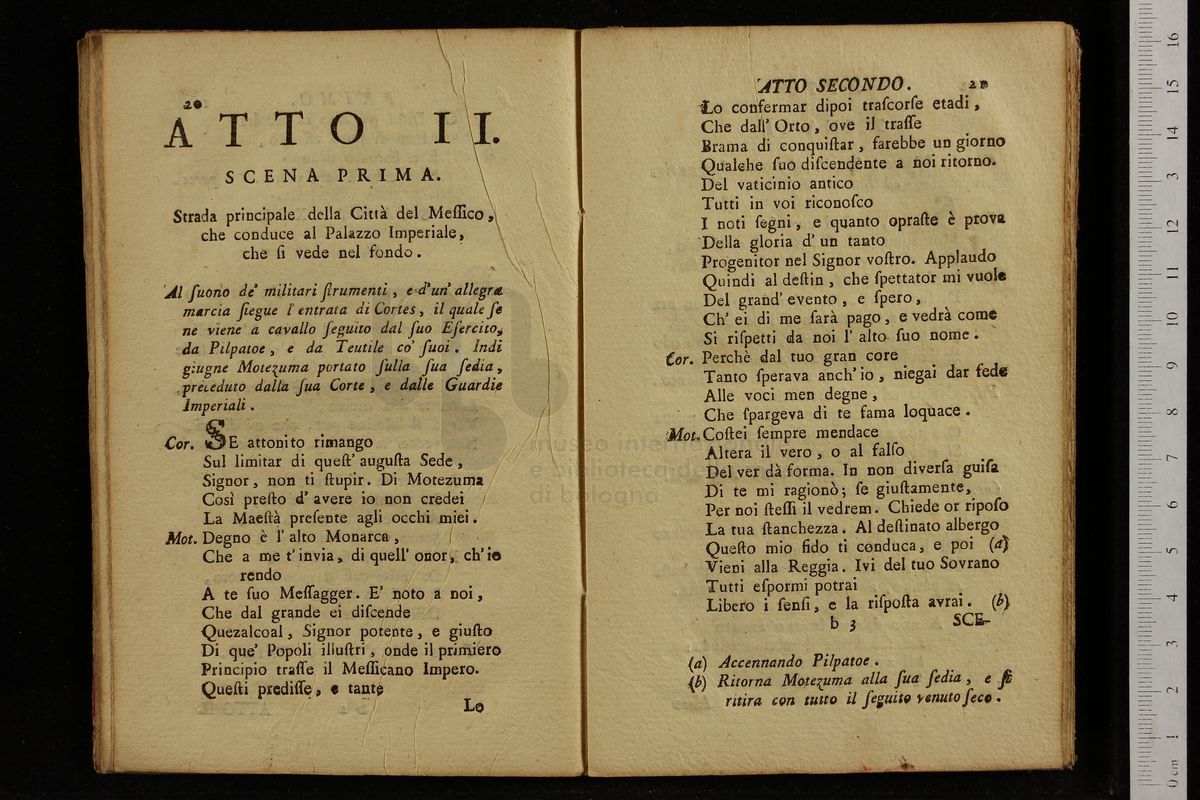 20
ATTO II.
SCENA PRIMA.
Strada principale della Città del Meſſico,
che conduce al Palazzo Imperiale,
che ſi vede nel fondo.
Al ſuono de' militari ſtrumenti, e d'un' allegra
marcia ſiegue l'entrata di Cortes, il quale ſe
ne viene a cavallo ſeguito dal ſuo Eſercito,
da Pilpatoe, e da Teutile co' ſuoi. Indi
giugne Motezuma portato ſulla ſua ſedia,
preceduto dalla ſua Corte, e dalle Guardie
Imperiali.
Cor. SE attonito rimango
Sul limitar di queſt' auguſta Sede,
Signor, non ti ſtupir. Di Motezuma
Così preſto d' avere io non credei
La Maeſtà preſente agli occhi miei.
Mot. Degno è l' alto Monarca,
Che a me t' invia, di quell' onor, ch' io
rendo
A te ſuo Meſſagger. E' noto a noi,
Che dal grande ei diſcende
Quezalcoal, Signor potente, e giuſto
Di que' Popoli illuſtri, onde il primiero
Principio traſſe il Meſſicano Impero.
Queſti prediſſe, e tante
Lo
ATTO SECONDO. 21
Lo confermar dipoi traſcorſe etadi,
Che dall' Orto, ove il traſſe
Brama di conquiſtar, farebbe un giorno
Qualche ſuo diſcendente a noi ritorno.
Del vaticinio antico
Tutti in voi riconoſco
I noti ſegni, e quanto opraſte è prova
Della gloria d' un tanto
Progenitor nel Signor voſtro. Applaudo
Quindi al deſtin, che ſpettator mi vuole
Del grand' evento, e ſpero,
Ch' ei di me ſarà pago, e vedrà come
Si riſpetti da noi l' alto ſuo nome.
Cor. Perchè dal tuo gran core
Tanto ſperava anch' io, niegai dar fede
Alle voci men degne,
Che ſpargeva di te fama loquace.
Mot. Coſtei ſempre mendace
Altera il vero, o al falſo
Del ver dà forma. In non diverſa guiſa
Di te mi ragionò; ſe giuſtamente,
Per noi ſteſſi il vedrem. Chiede or ripoſo
La tua ſtanchezza. Al deſtinato albergo
Queſto mio fido ti conduca, e poi (a)
Vieni alla Reggia. Ivi del tuo Sovrano
Tutti eſpormi potrai
Libero i ſenſi, e la riſpoſta avrai. (b)
b 3 SCE-
(a) Accennando Pilpatoe.
(b) Ritorna Motezuma alla ſua ſedia, e ſi
ritira con tutto il ſeguito venuto ſeco.
di bologna
0 cm 1 2 3 4 5 6 7 8 9 10 11 12 13 14 15 16